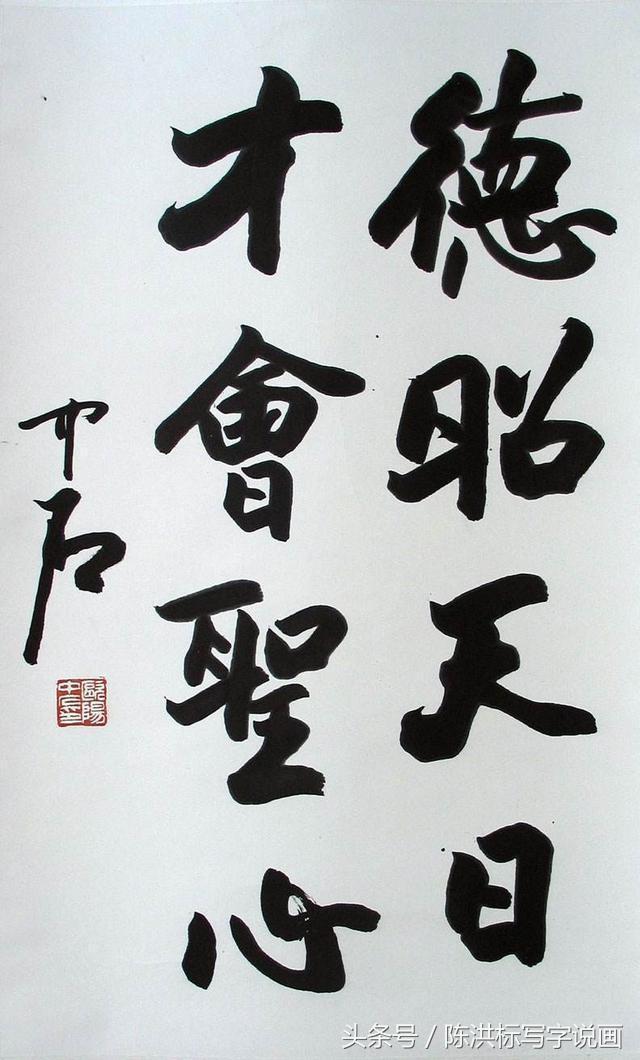 德昭天日
才會聖心
中石
歐陽中石鉨
头条号 / 陈洪标写字说画